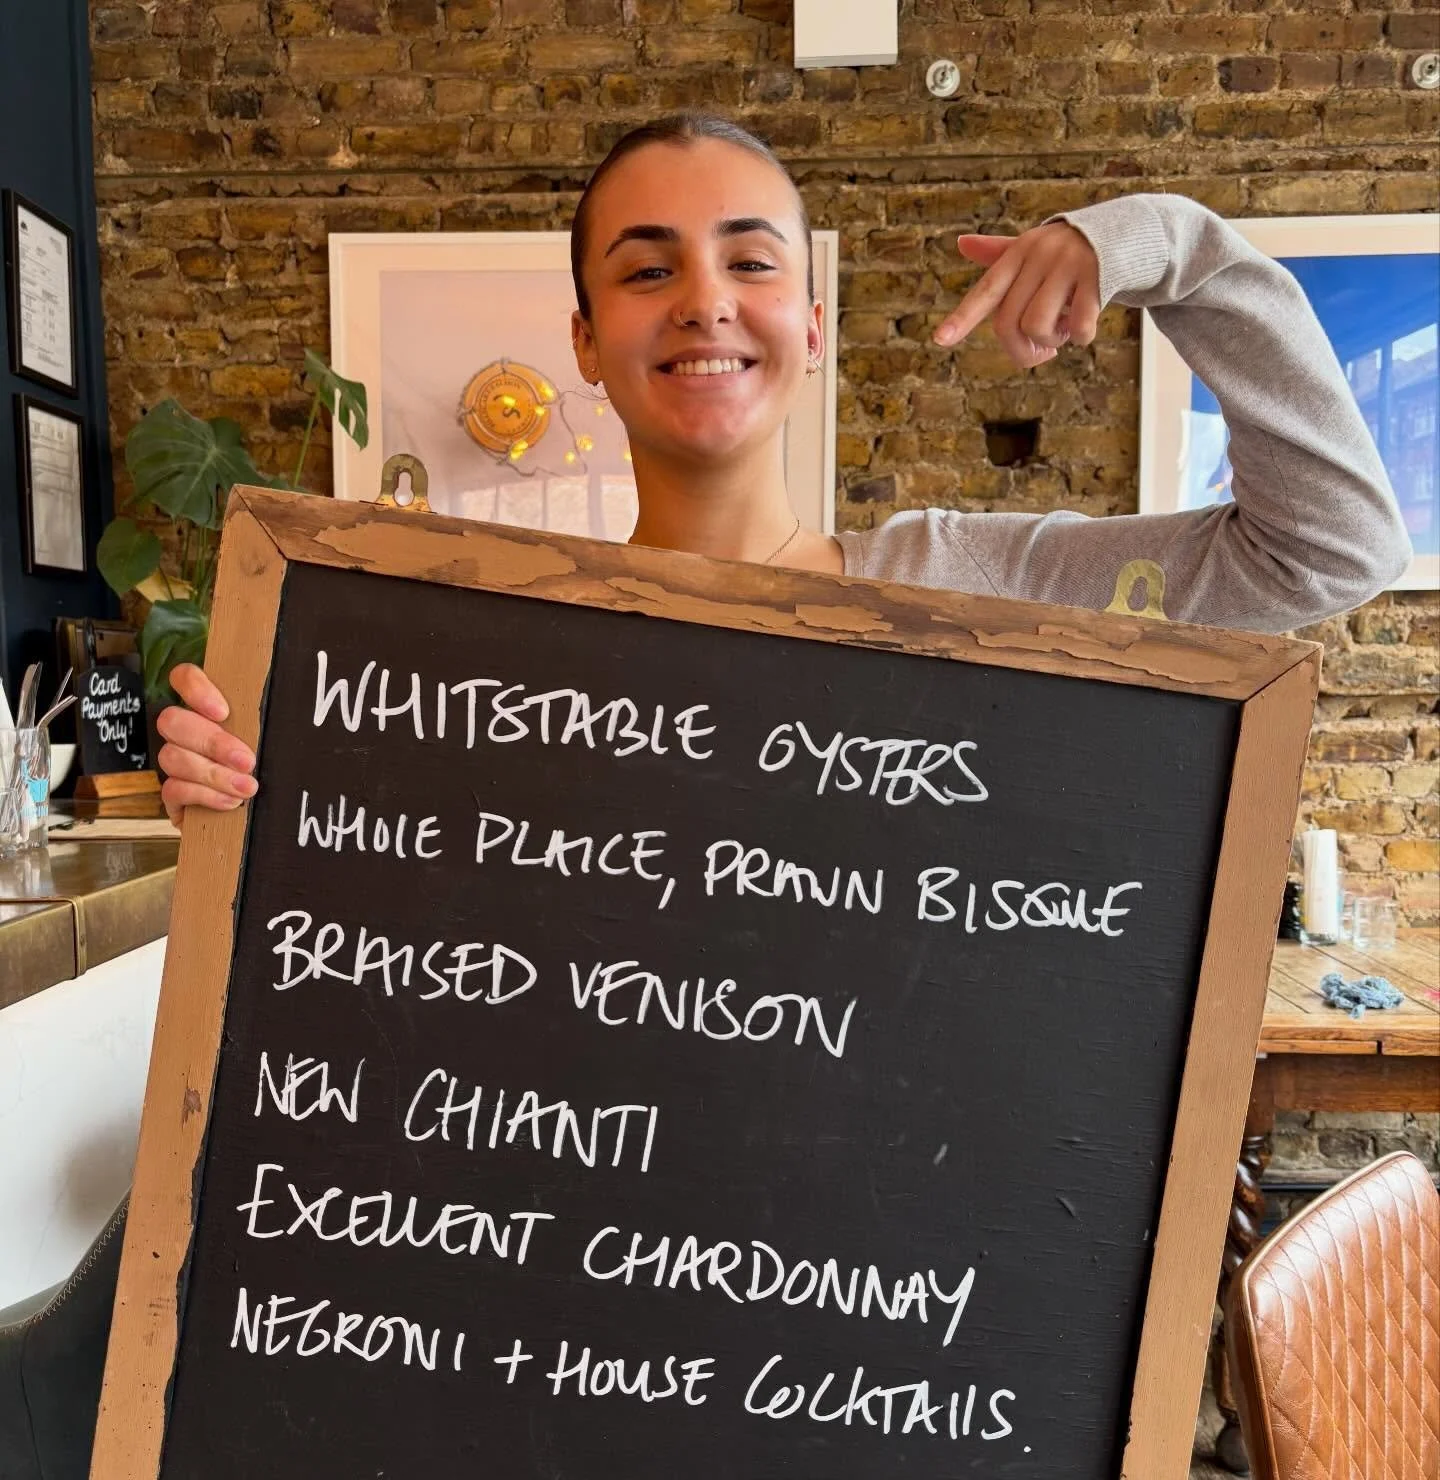 WHITSTABLE OYSTERS
WHOLE PLAICE, PRAWN BISQUE
BRAISED VENISON
NEW CHIANTI
EXCELLENT CHARDONNAY
NEGRONI + HOUSE COCKTAILS.
Card
Payments
Only!